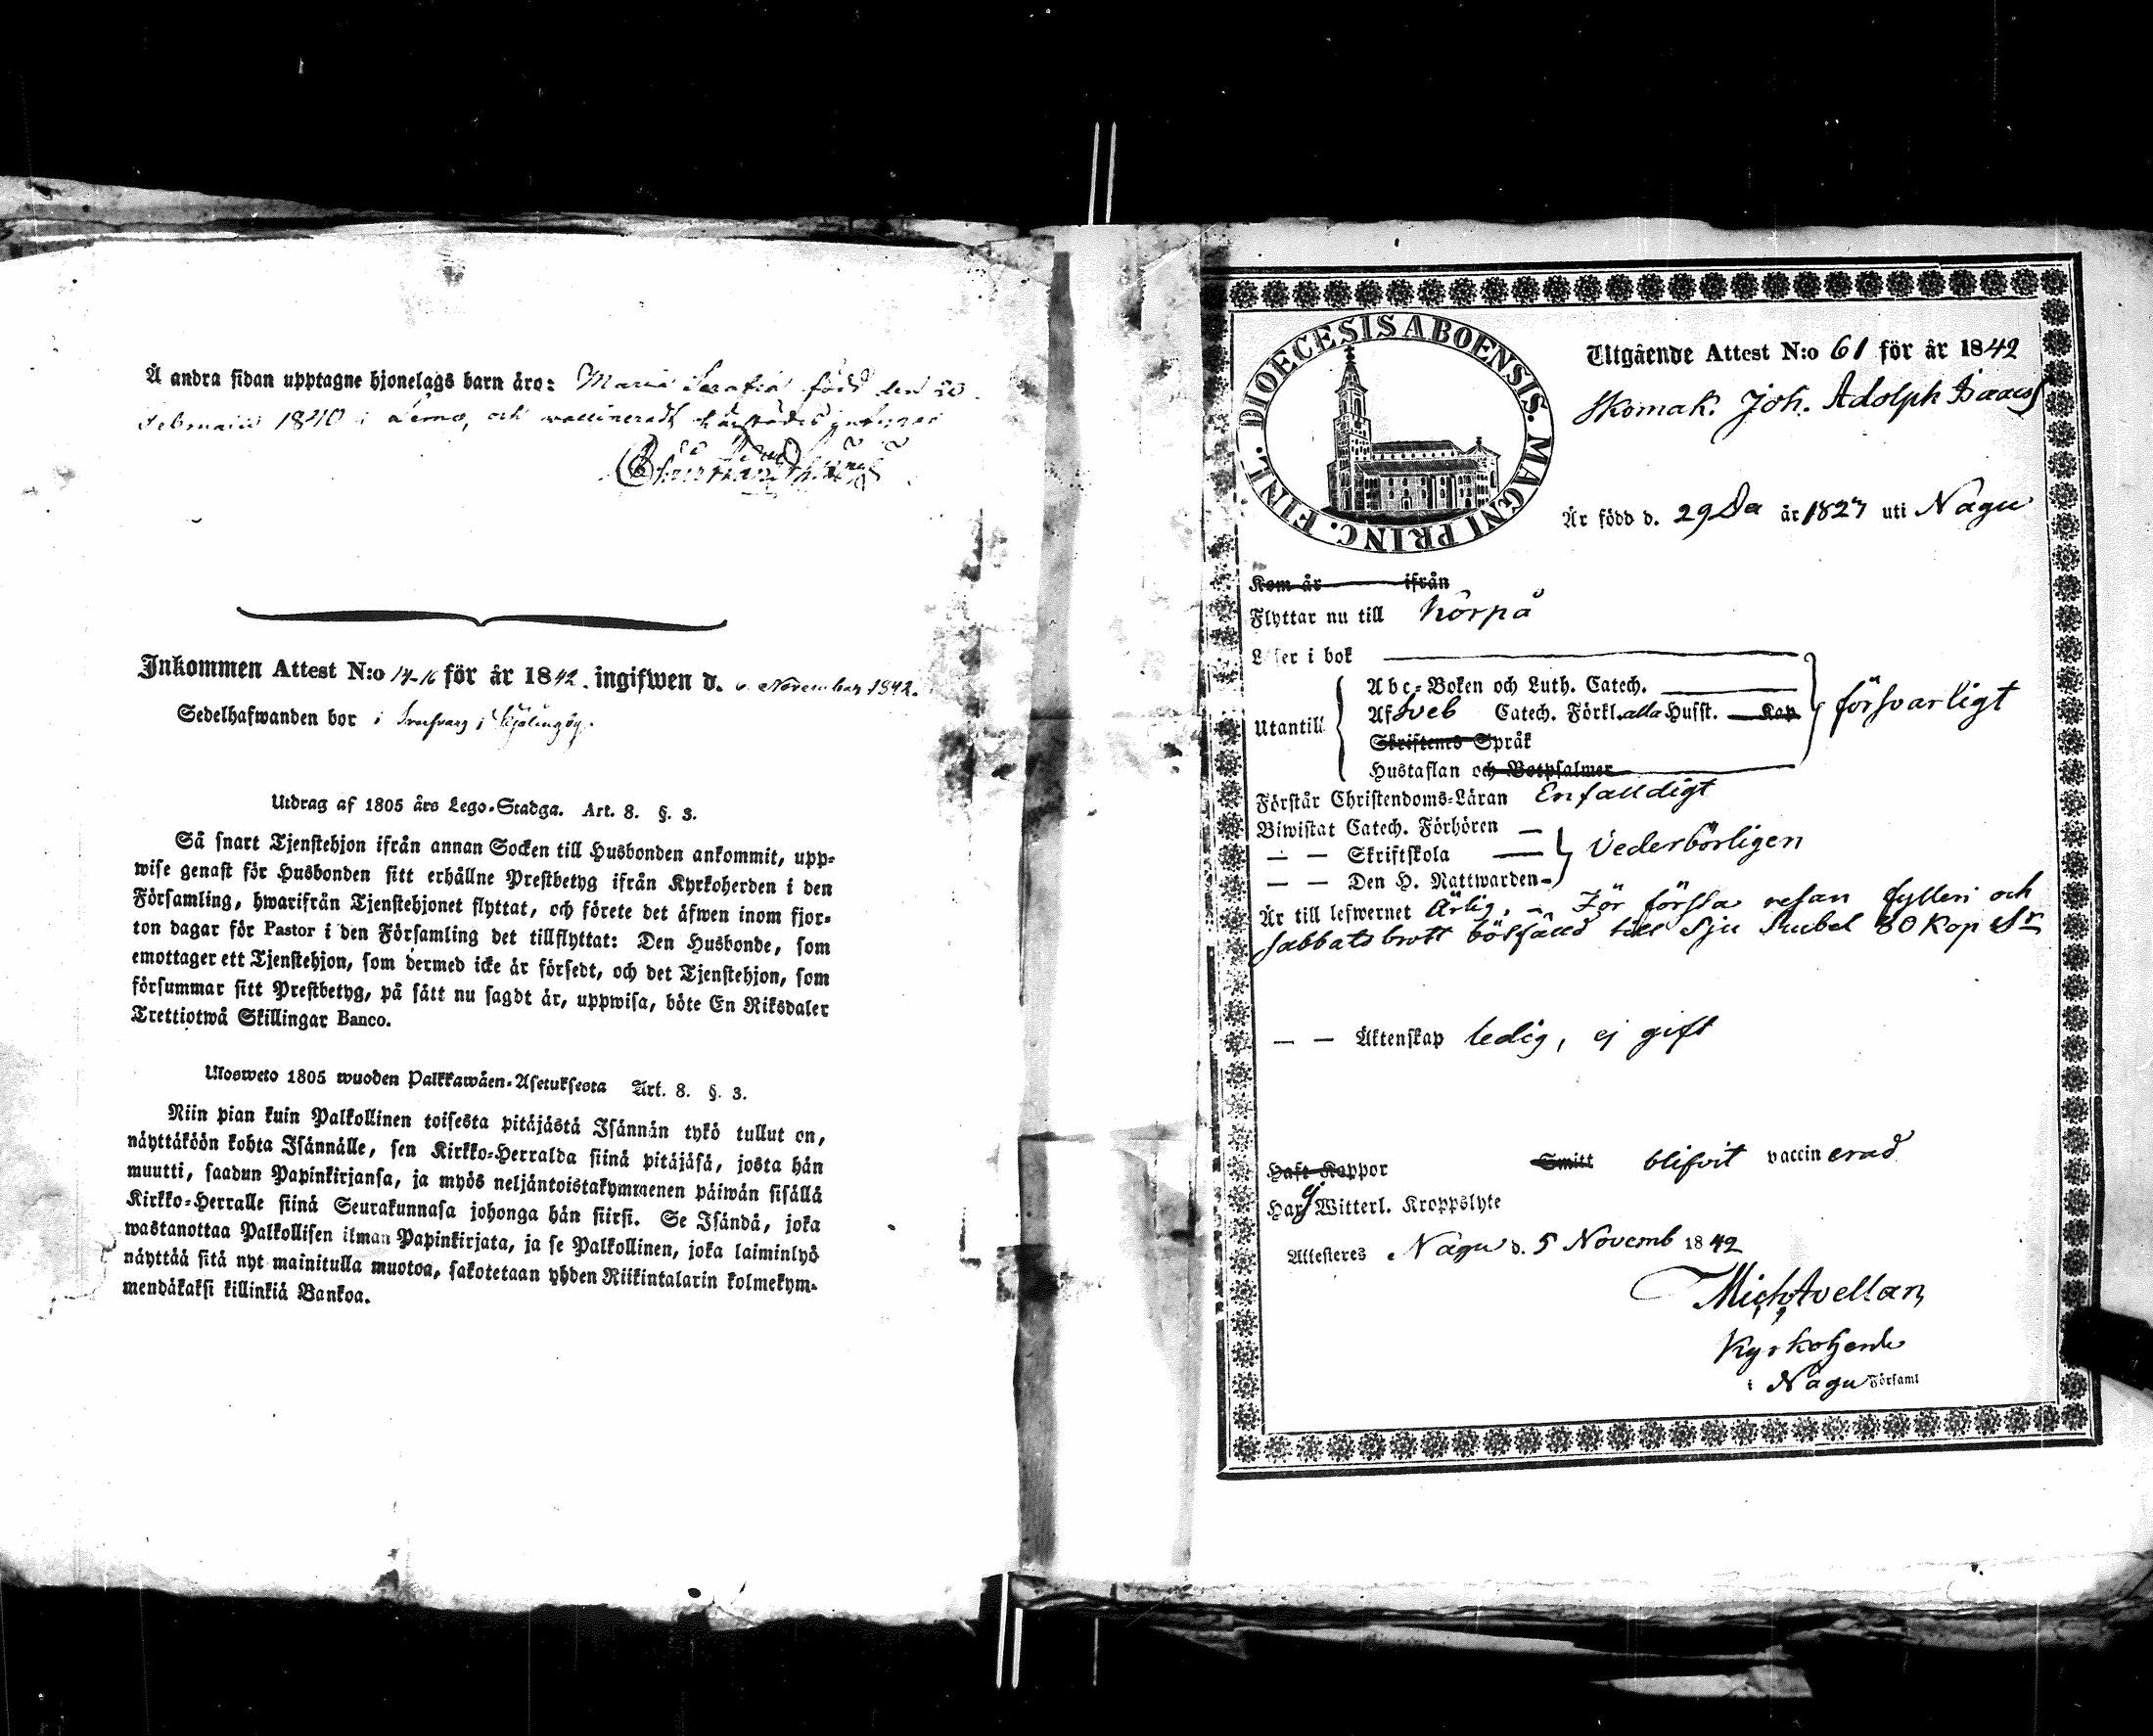 Å andra sidan upptagne hjonelags barn äro: Maria Serafia född den 20
Februarii 1840 i Lemo, och vaccinerad
Inkommen Attest N:o 14-16 för år 1842. ingifwen d. 6 November 1842.
Sedelhafwanden bor i
Utdrag af 1805 års Lego-Stadga. Art. 8. §. 3.
Så snart Tjenstehjon ifrån annan Socken till Husbonden ankommit, upp-
wise genast för Husbonden sitt erhållne Prestbetyg ifrån Kyrkoherden i den
Församling, hwarifrån Tjenstehjonet flyttat, och förete det äfwen inom fjor-
ton dagar för Pastor i den Församling det tillflyttat: Den Husbonde, som
emottager ett Tjenstehjon, som dermed icke är försedt, och det Tjenstehjon, som
försummar sitt Prestbetyg, på sätt nu sagdt är, uppwisa, böte En Riksdaler
Trettiotwå Skillingar Banco.
Ulosweto 1805 wuoden Palkkawäen-Asetuksesta Art. 8. §. 3.
Niin pian kuin Palkollinen toisesta pitäjästä Isännän tykö tullut on,
näyttäköön kohta Isännälle, sen Kirkko-Herralda siinä pitäjäsä, josta hän
muutti, saadun Papinkirjansa, ja myös neljäntoistakymmenen päiwän sisällä
Kirkko-Herralle siinä Seurakunnasa johonga hän siirsi. Se Isändä, joka
wastanottaa Palkollisen ilman Papinkirjata, ja se Palkollinen, joka laiminlyö
näyttää sitä nyt mainitulla muotoa, sakotetaan yhden Riikintalarin kolmekym-
mendäkaksi killinkiä Bankoa.
DIOECESIS ABOENSIS. MAGNI PRINC. FINL.
Utgående Attest N:o 61 för år 1842
Skomak. Joh. Adolph Isaacs
Är född d. 29 år 1827 uti Nagu
Kom år ifrån
Flyttar nu till Korpå
Läser i bok
Abc-Boken och Luth. Catech.
Utantill
Af Sveb Catech. Förkl. alla Husst. Kap
Skriftenes Språk
försvarligt
Hustaflan och Botpsalmer
Förstår Christendoms-Läran Enfalldigt
Biwistat Catech. Förhören
— — Skriftskola
Vederbörligen
— — Den H. Nattwarden
Är till lefwernet Ärlig, – För första resan fylleri och
sabbatsbrott bötfälld till Sju Rubel 80 Kop Sr
— — Äktenskap ledig, ej gift
Haft Koppor Smitt blifvit vaccinerad
Har ej Witterl. Kroppslyte
Attesteres Nagu d. 5 Novemb 1842
Mich. Avellan,
Kyrkoherde
i Nagu Församl